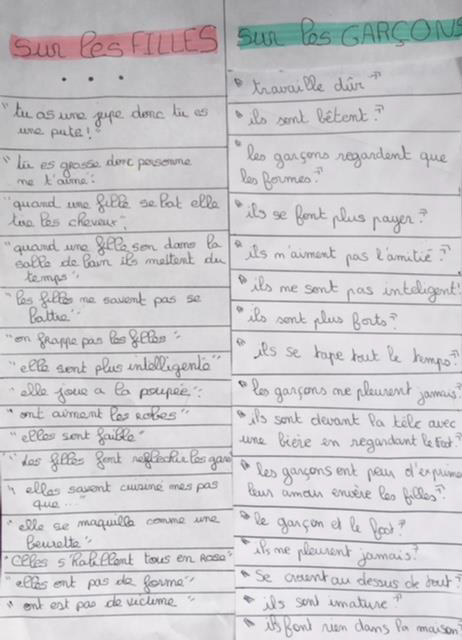 Sur les FILLES
...
"tu as une jupe donc tu es
une pute!"
"tu es grosse donc personne
ne t'aime".
"quand une fille se bat elle
tire les cheveux".
"quand une fille son dans la
salle de bain ils mettent du
temps".
"les filles ne savent pas se
battre"
"on frappe pas les filles"
"elle sont plus intelligente"
"elle joue a la poupée".
"ont aiment les robes"
"elles sont faible"
"des filles font reflechir les gars
"elles savent cuisiné mes pas
que ..."
"elle se maquille comme une
beurette"
"Elles s'habillent tous en Rose"
"elles ont pas de forme"
"ont est pas de victime"
Sur les GARÇONS
travaille dûr"
ils sont bêtent."
les garçons regardent que
les formes."
ils se font plus payer."
ils n'aiment pas l'amitié."
ils ne sont pas inteligent!
ils sont plus forts."
ils se tape tout le temps."
les garçons ne pleurent jamais."
ils sont devant la télé avec
une bière en regardant le foot."
les garçons ont peur d'exprime
leur amour envère les filles".
le garçon et le foot."
ils ne pleurent jamais."
Se croient au dessus de tout."
ils sont imature."
ils font rien dans la maison"